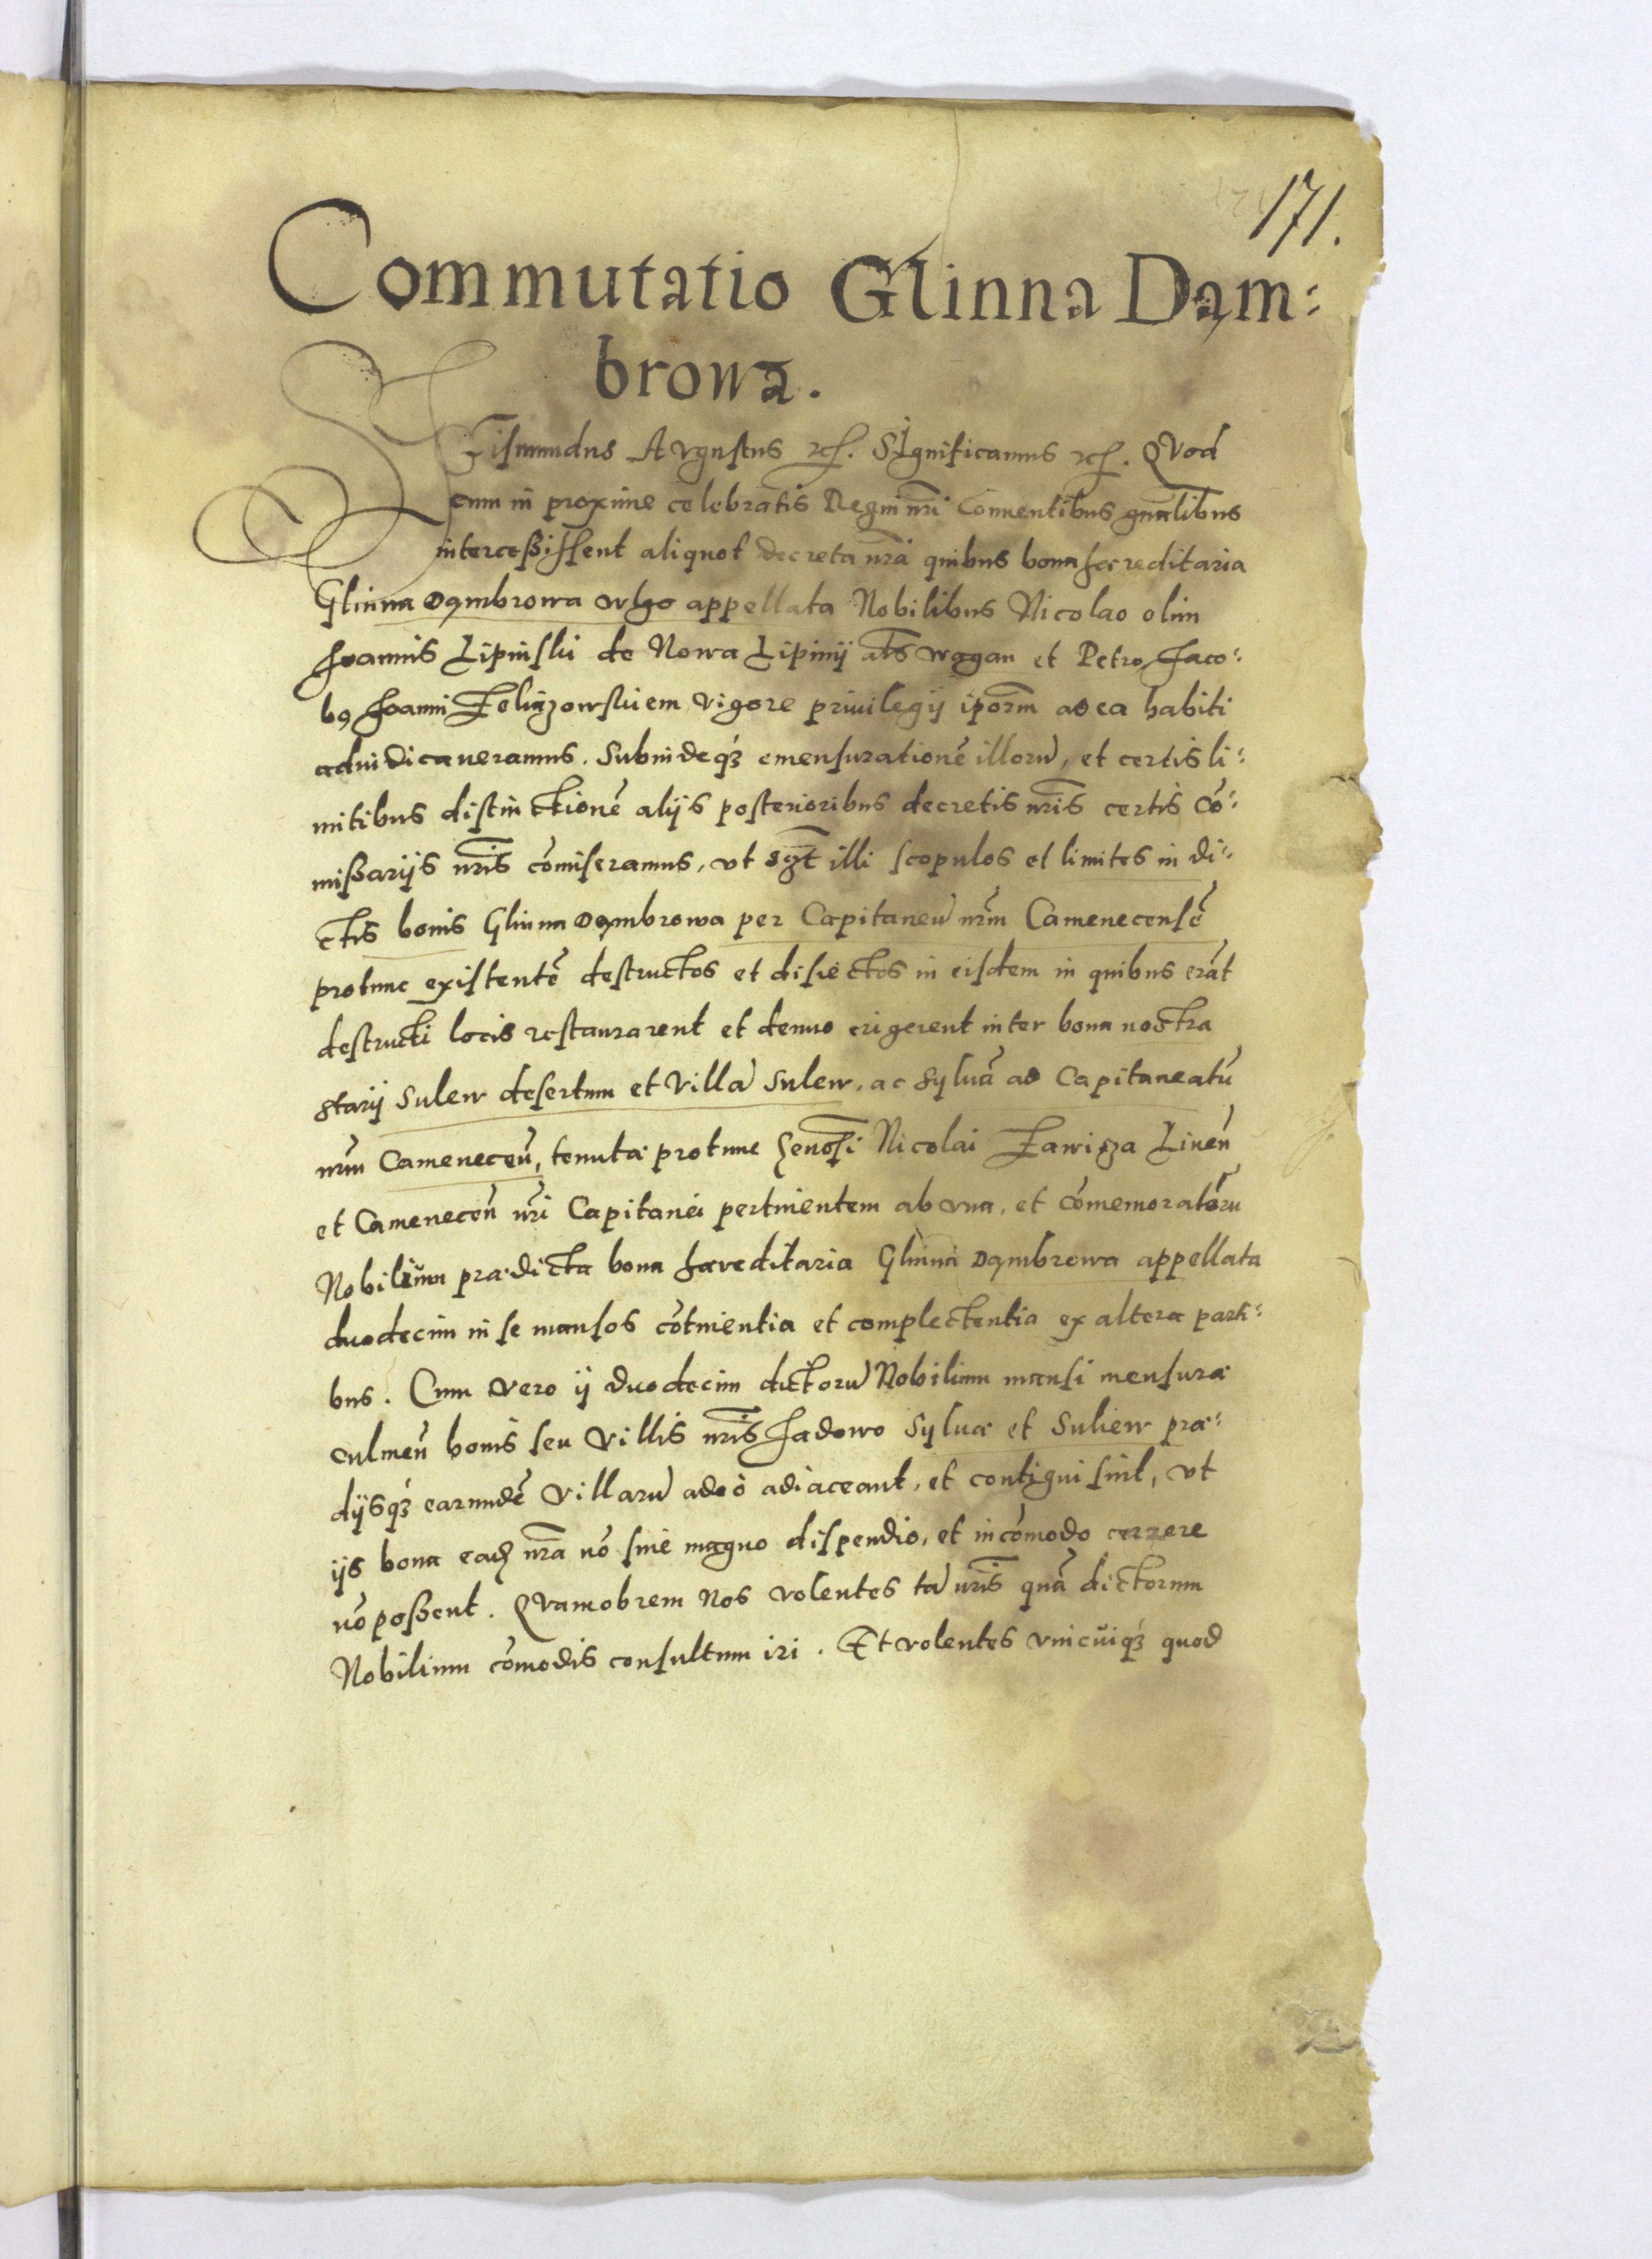 171.
Commutatio Glinna Dam:
browa.
Sigismundus Augustus etc. Significamus etc. Quod
cum in proxime celebratis Regni nr̃i Conuentibus gnãlibus
interceßissent aliquot decreta nrã quibus bona hæreditaria
Glinna Dąmbrowa vlgo appellata Nobilibus Nicolao olim
Joannis Lipinski de Nowa Lipinij als̃ Wągan et Petro, Jaco:
bo, Joanni vigore priuilegij ipor̃m ad ea habiti
adiudicaueramus. Subindeq₃ emensurationẽ illorũ, et certis li:
mitibus distinctionẽ alijs posterioribus decretis nr̃is certis Cõ:
mißarijs nr̃is cõmiseramus, vt illi scopulos et limites in di:
ctis bonis Glinna Dąmbrowa per Capitaneũ nr̃m Camenecensẽ
protunc existentẽ destructos et disiectos in eisdem in quibus erãt
destructi locis restaurarent et denuo erigerent inter bona nostra
starij Sulew desertum et Villã Sulew, ac syluã ad Capitaneatũ
nr̃m Camenecen̄, tenutæ protunc Genosi Nicolai Zawisza Liuen̄
et Camenecen̄ nr̃i Capitanei pertinentem ab vna, et cõmemoratorũ
Nobilium prædicta bona hæreditaria Glinna Dąmbrowa appellata
duodecim in se mansos cõtinentia et complectentia ex altera parti:
bus. Cum vero ij duodecim dictorũ Nobilium mansi mensuræ
culmen̄ bonis seu Villis nr̃is Jadowo Syluæ et Suliew præ:
dijsq₃ earundẽ Villarũ adeò adiaceant, et contigui sint, vt
ijs bona eadẽ nr̃a nõ sine magno dispendio, et incõmodo carere
nõ poßent. Quamobrem Nos volentes tã nr̃is quã dictorum
Nobilium cõmodis consultum iri. Et volentes vnicuiq₃ quod